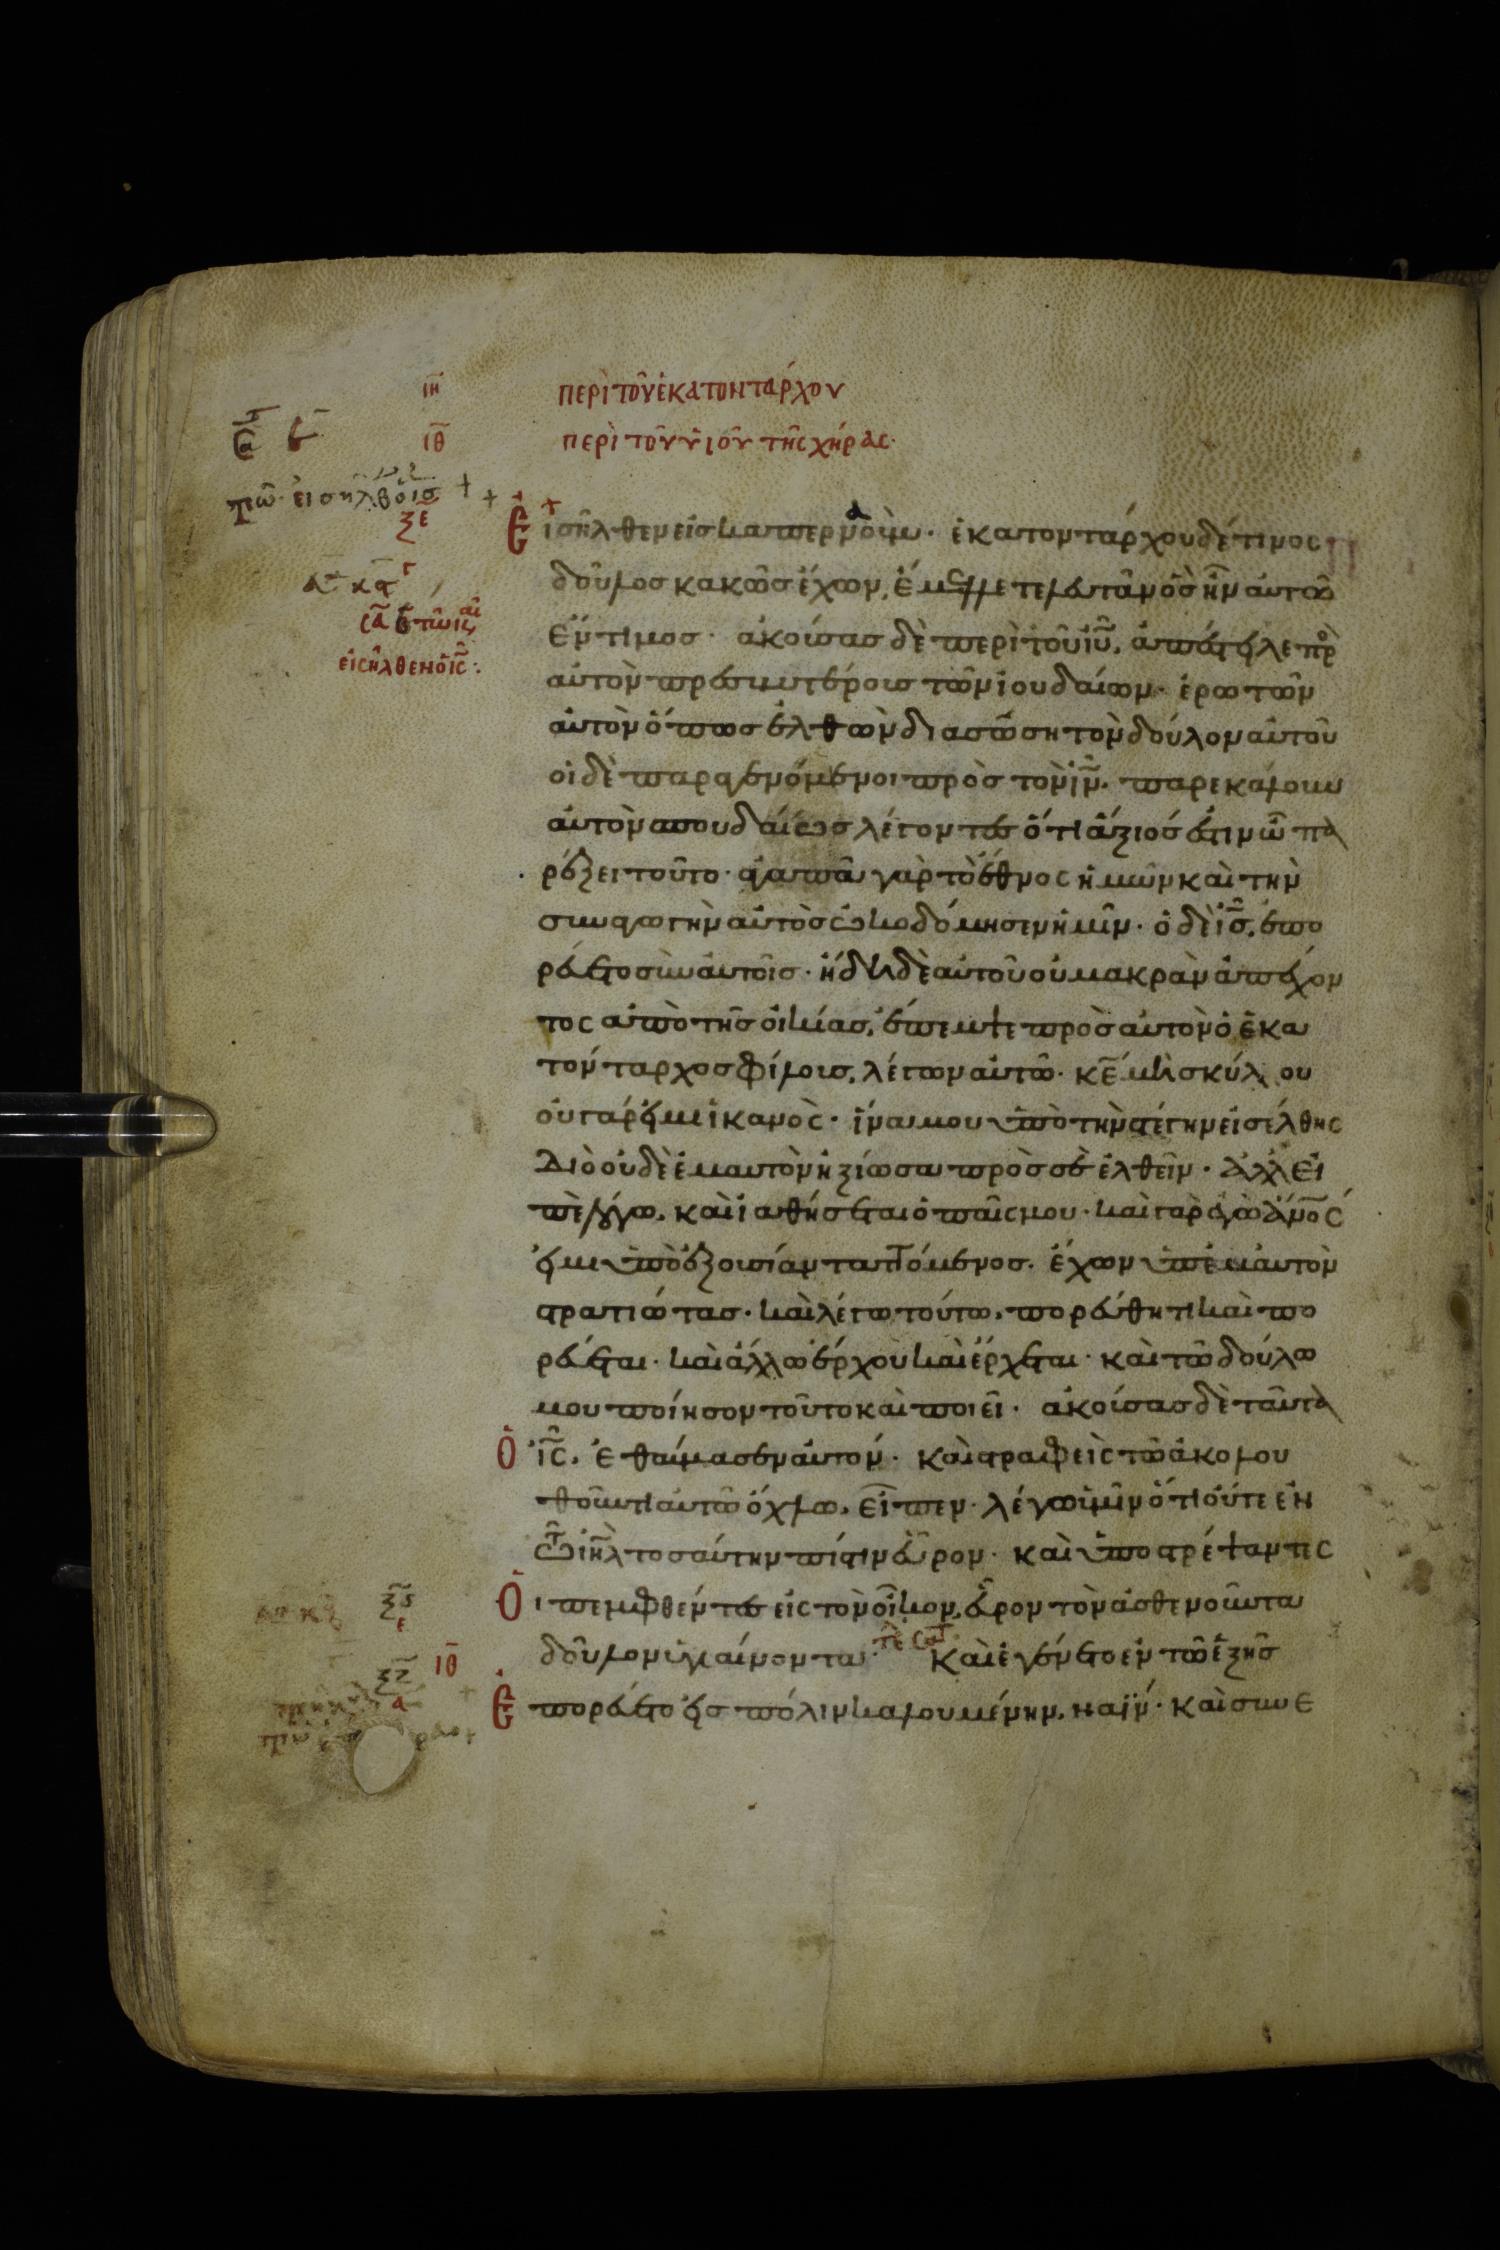 ιη περὶ τοῦ ἑκατοντάρχου
ιθ περὶ τοῦ υἱοῦ τῆς χήρας
εἰσῆλθεν ὁ ις
ξε
εἰσῆλθεν ὁ ις
Εἰσῆλθεν εἰς καπερναούμ· ἑκατοντάρχου δέ τινος
δοῦλος κακῶς ἔχων, ἔμελλε τελευτᾶν ὃς ἦν αὐτῶ
ἔντιμος· ἀκούσας δὲ περὶ τοῦ ιυ, ἀπέστειλε πρ
αὐτὸν πρεσβυτέροις τῶν ἰουδαίων· ἐρωτῶν
αὐτὸν ὅπως ἐλθὼν διασώση τὸν δοῦλον αὐτοῦ
οἱ δὲ παραγενόμενοι πρὸς τὸν ιν, παρεκάλουν
αὐτὸν σπουδαίως λέγοντες ὅτι ἄξιός ἐστιν ῶ πα
ρέξει τοῦτο· ἀγαπᾶ γὰρ τὸ ἔθνος ἡμῶν καὶ τὴν
συναγωγὴν αὐτὸς ὠκοδόμησεν ἡμῖν· ὁ δὲ ις, ἐπο
ρεύετο σὺν αὐτοῖς· ἤδη δὲ αὐτοῦ οὐ μακρὰν ἀπέχον
τος ἀπὸ τῆς οἰκίας, ἔπεμψε πρὸς αὐτὸν ὁ ἑκα
τόνταρχος φίλους, λέγων αὐτῶ· κε μὴ σκύλλου
οὐ γάρ εἰμι ἱκανὸς· ἵνα μου ὑπὸ τὴν στέγην εἰσέλθης
Διὸ οὐδὲ ἐμαυτὸν ἠξίωσα πρὸς σὲ ἐλθεῖν· Ἀλλ εἰ
πὲ λόγω, καὶ ἰαθήσεται ὁ παῖς μου· καὶ γὰρ ἐγὼ ανος
εἰμι ὑπὸ ἐξουσίαν ταττόμενος. ἔχων ὑπ ἐμαυτὸν
στρατιώτας· καὶ λέγω τούτω, πορεύθητι καὶ πο
ρεύεται· καὶ ἄλλω ἔρχου καὶ ἔρχεται· καὶ τῶ δούλω
μου ποίησον τοῦτο καὶ ποιεῖ· ἀκούσας δὲ ταῦτα
Ὁ ις, ἐθαύμασεν αὐτόν· καὶ στραφεὶς τῶ ἀκολου
θοῦντι αὐτῶ ὄχλω, εἶπεν· λέγω ὑμῖν ὅτι οὔτε ἐν
τῶ ιηλ τοσαύτην πίστιν εὗρον· καὶ ὑποστρέψαντες
Οἱ πεμφθέντες εἰς τὸν οἶκον, εὗρον τὸν ἀσθενοῦντα
ξς
ε
δοῦλον ὑγιαίνοντα· Καὶ ἐγένετο ἐν τῶ ἑξῆς
ξζ ιθ
α
Ἐπορεύετο εἰς πόλιν καλουμένην, ναΐν· καὶ συνε